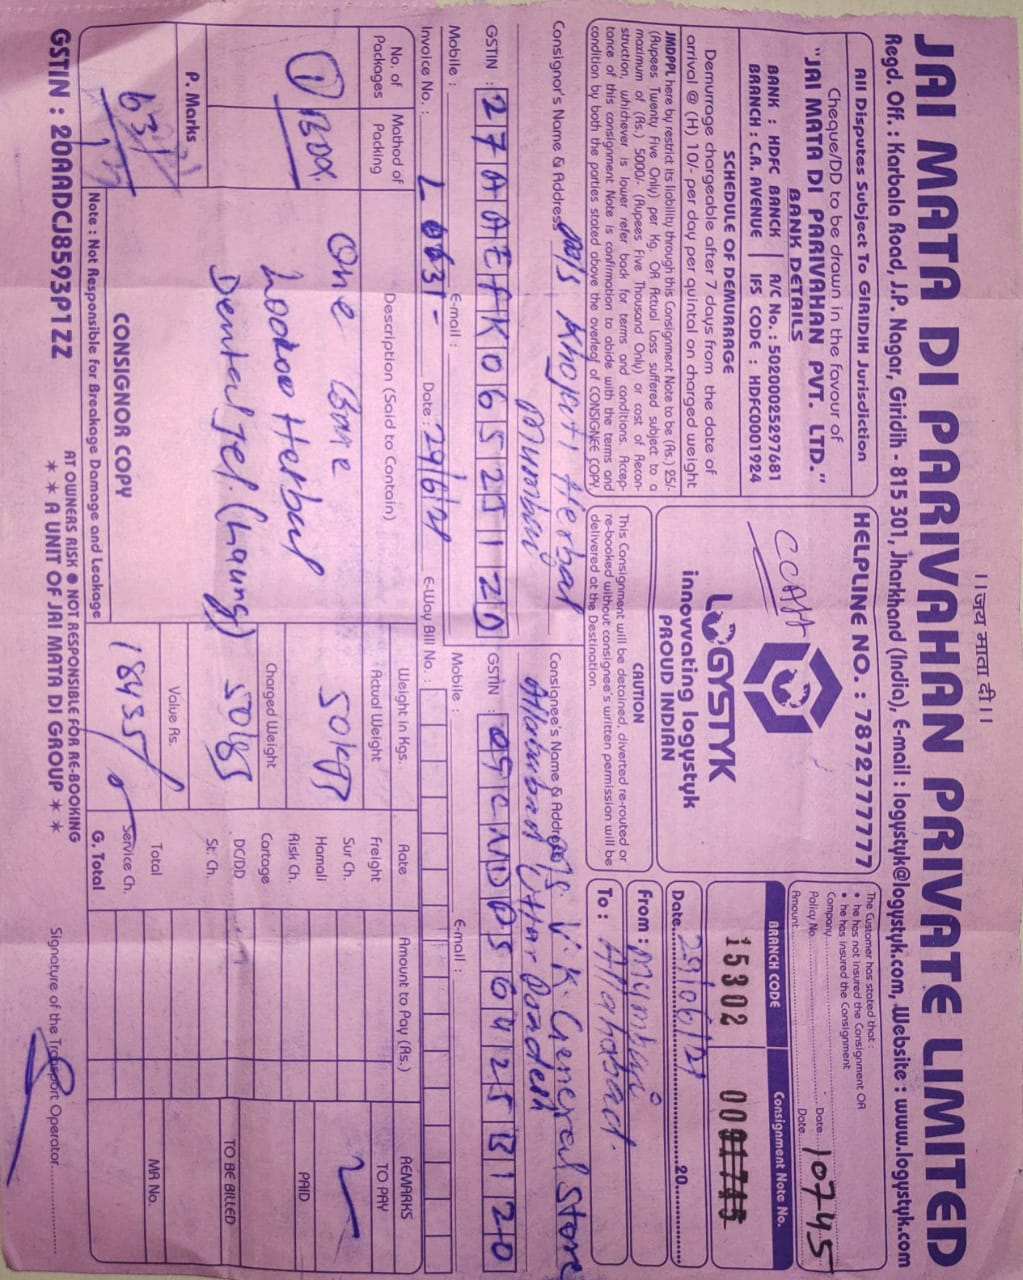 ।। जय माता दी ।।
JAI MATA DI PARIVAHAN PRIVATE LIMITED
Regd. Off. : Karbala Road, J.P. Nagar, Giridih - 815 301, Jharkhand (India), E-mail : logystyk@logystyk.com, Website : www.logystyk.com
All Disputes Subject To GIRIDIH Jurisdiction
Cheque/DD to be drawn in the favour of
"JAI MATA DI PARIVAHAN PVT. LTD."
BANK DETAILS
BANK : HDFC BANCK A/C No. : 50200025297681
BRANCH : C.R. AVENUE IFS CODE : HDFC0001924
SCHEDULE OF DEMURRAGE
Demurrage chargeable after 7 days from the date of
arrival @ (H) 10/- per day per quintal on charged weight
JMDPPL here by restrict its liability through this Consignment Note to be (Rs.) 25/-
(Rupees Twenty Five Only) per Kg. OR Actual Loss suffered subject to a
maximum of (Rs.) 5000/- (Rupees Five Thousand Only) or cost of Recon-
struction, whichever is lower refer back for terms and conditions. Accep-
tance of this consignment Note is confirmation to abide with the terms and
condition by both the parties stated above the overleaf of CONSIGNEE COPY
HELPLINE NO. : 7872777777
LOGYSTYK
innovvating logystyk
PROUD INDIAN
CAUTION
This Consignment will be detained, diverted re-routed or
re-booked without consignee's written permission will be
delivered at the Destination.
The Customer has stated that :
• he has not insured the Consignment OR
• he has insured the Consignment
Company Date
Policy No Date
Amount
10745
BRANCH CODE Consignment Note No.
15302 001745
Date 29/06/21 20
From : Mumbai
To : Allahabad.
Consignor's Name & Address M/s Khojati Herbal
Mumbai
GSTIN : 27AAEFK0652J1ZD
Mobile : E-mail :
Consignee's Name & Address M/s. V.K. General Store
Allahabad Uttar Pradesh
GSTIN : 09CMDPS6425B1ZO
Mobile : E-mail :
Invoice No. : L 0631- Date : 29/6/21 E-Way Bill No. :
No. of Packages Mathod of Packing Description (Said to Contain) Weight in Kgs. Rate Amount to Pay (Rs.) REMARKS
① Box One
Herbal
Dental Jel. (Laung)
Actual Weight
50 kgs
Charged Weight
50 kgs
Value Rs.
18435/
Freight
Sur Ch.
Hamali
Risk Ch.
Cartage
DC/DD
St. Ch.
Total
Service Ch.
G. Total
TO PAY
PAID
TO BE BILLED
MR No.
P. Marks
631/
CONSIGNOR COPY
Note : Not Responsible for Breakage Damage and Leakage
AT OWNERS RISK ● NOT RESPONSIBLE FOR RE-BOOKING
GSTIN : 20AADCJ8593P1ZZ ★ ★ A UNIT OF JAI MATA DI GROUP ★ ★
Signature of the Transport Operator